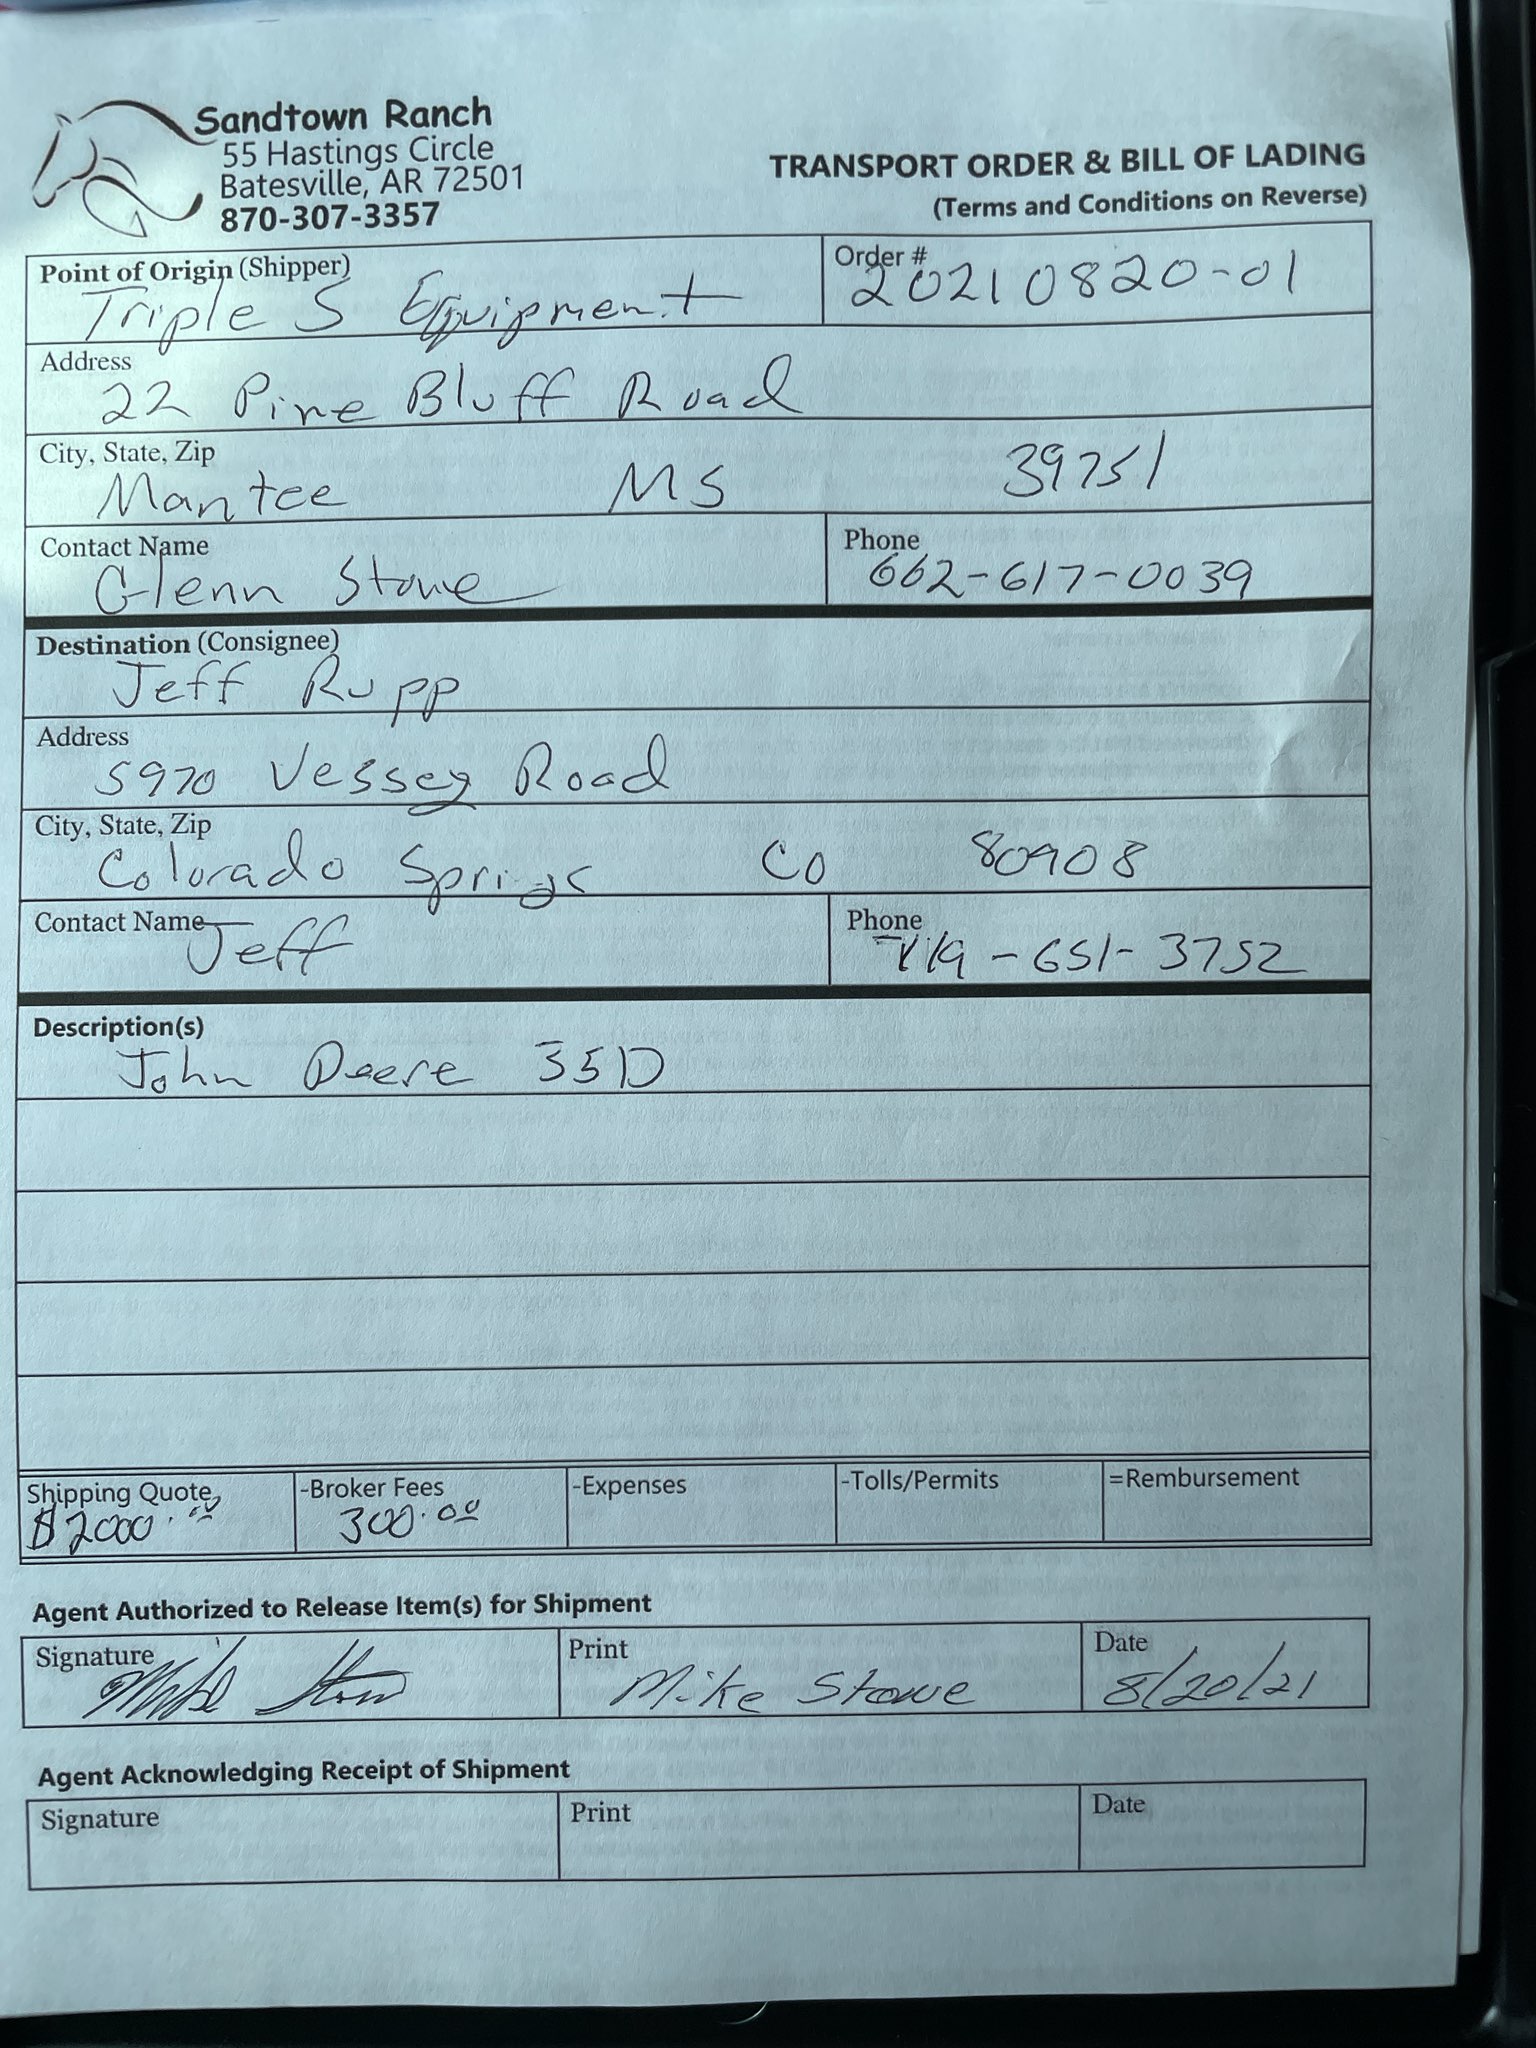 Sandtown Ranch
55 Hastings Circle
Batesville, AR 72501
870-307-3357
TRANSPORT ORDER & BILL OF LADING
(Terms and Conditions on Reverse)
Point of Origin (Shipper)
Triple S Equipment
Order #
20210820-01
Address
22 Pine Bluff Road
City, State, Zip
Mantee MS 39751
Contact Name
Glenn Stowe
Phone
662-617-0039
Destination (Consignee)
Jeff Rupp
Address
5970 Vessey Road
City, State, Zip
Colorado Springs CO 80908
Contact Name
Jeff
Phone
719-651-3752
Description(s)
John Deere 35D
Shipping Quote
$2000.00
-Broker Fees
300.00
-Expenses
-Tolls/Permits
=Rembursement
Agent Authorized to Release Item(s) for Shipment
Signature
Mike Stowe
Print
Mike Stowe
Date
8/20/21
Agent Acknowledging Receipt of Shipment
Signature
Print
Date